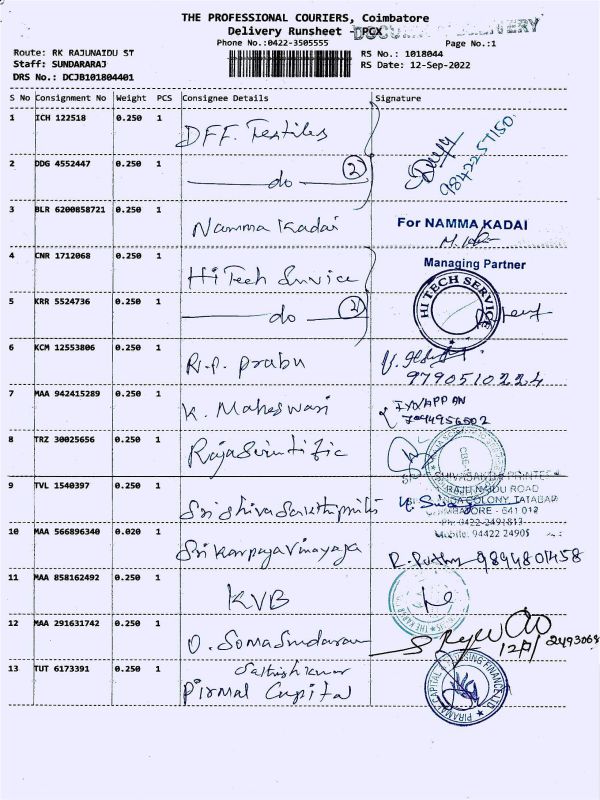 THE PROFESSIONAL COURIERS, Coimbatore
Delivery Runsheet - PCX
Phone No.:0422-3505555
Page No.:1
Route: RK RAJUNAIDU ST
RS No.: 1018044
Staff: SUNDARARAJ
RS Date: 12-Sep-2022
DRS No.: DCJB101804401
S No Consignment No Weight PCS Consignee Details Signature
1 ICH 122518 0.250 1 DFF. Textiles
2 DDG 4552447 0.250 1 do 2
3 BLR 6200858721 0.250 1 Namma Kadai For NAMMA KADAI
Managing Partner
4 CNR 1712068 0.250 1 Hi Tech Service
HI TECH SERVICE
5 KRR 5524736 0.250 1 do 2
6 KCM 12553806 0.250 1 R.P. Prabu
9790510224
7 MAA 942415289 0.250 1 K. Maheswari
8 TRZ 30025656 0.250 1 Raja Scientific
9 TVL 1540397 0.250 1 Sri Shiva Sakthi
SHIVASAKTHI PRINTERS
RAJU NAIDU ROAD
COLONY, TATABAD
COIMBATORE - 641 012
Ph: 0422-2491813
Mobile: 94422 24905
10 MAA 566896340 0.020 1 Sri Karpaga Vinayaga 9894801458
11 MAA 858162492 0.250 1 KVB
12 MAA 291631742 0.250 1 O. Somasundaram
13 TUT 6173391 0.250 1 Sathishkumar
Pirmal Capital
PIRAMAL CAPITAL & HOUSING FINANCE LTD